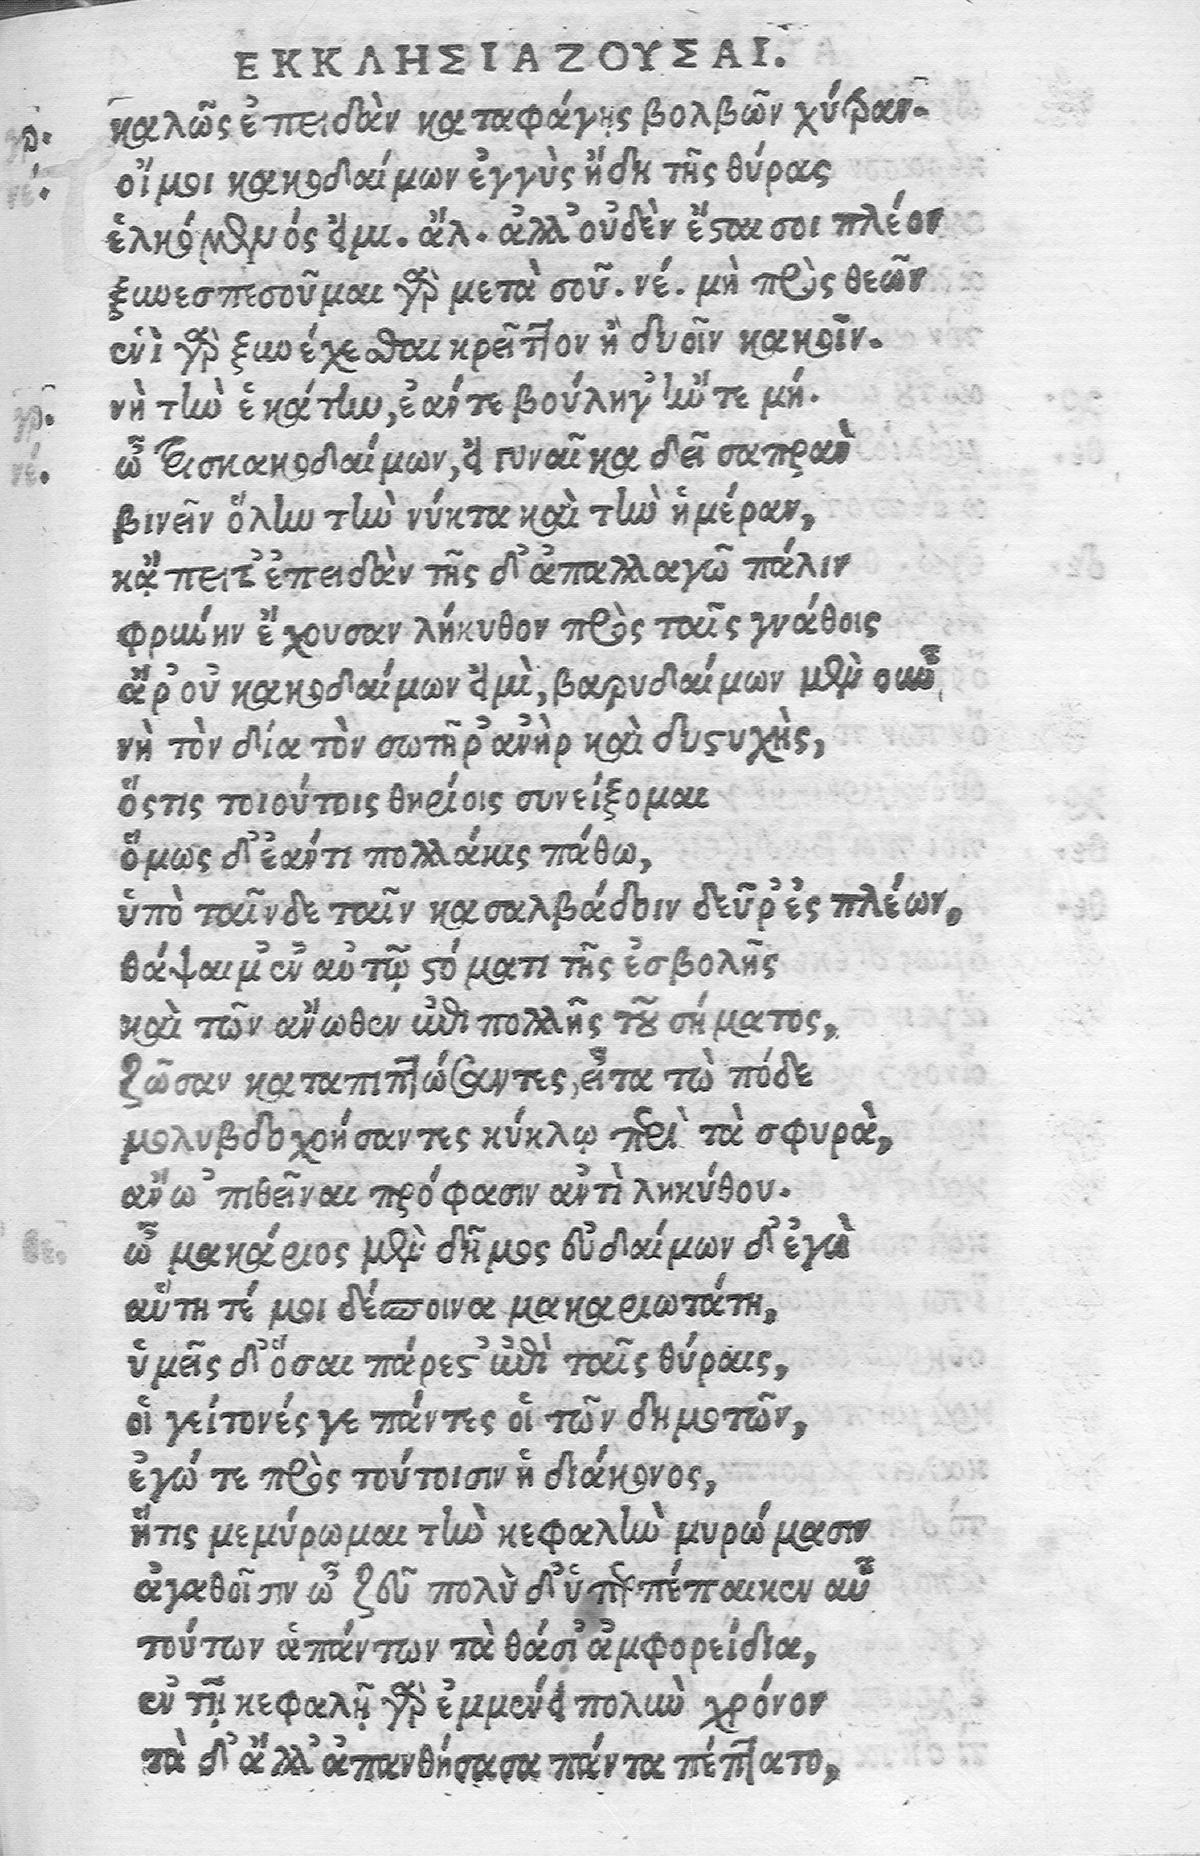 ΕΚΚΛΗΣΙΑΖΟΥΣΑΙ.
γρ. καλῶς ἐπειδὰν καταφάγῃς βολβῶν χύτραν.
νέ. οἴμοι κακοδαίμων ἐγγὺς ἤδη τῆς θύρας
ἑλκόμενός εἰμι. ἄλ. ἀλλ᾽ οὐδὲν ἔσται σοι πλέον
ξυνεσπεσοῦμαι γὰρ μετὰ σοῦ. νέ. μὴ πρὸς θεῶν
ἑνὶ γὰρ ξυνέχεσθαι κρεῖττον ἢ δυοῖν κακοῖν.
γρ. νὴ τὴν ἑκάτην, ἐάντε βούλῃ γ᾽ ἤντε μή.
νέ. ὦ τρισκακοδαίμων, εἰ γυναῖκα δεῖ σαπρὰν
βινεῖν ὅλην τὴν νύκτα καὶ τὴν ἡμέραν,
κᾄπειτ᾽ ἐπειδὰν τῆς δ᾽ ἀπαλλαγῶ πάλιν
φρύνην ἔχουσαν λήκυθον πρὸς ταῖς γνάθοις
ἆρ᾽ οὐ κακοδαίμων εἰμὶ, βαρυδαίμων μὲν οὖν
νὴ τὸν δία τὸν σωτῆρ᾽ ἀνὴρ καὶ δυστυχὴς,
ὅστις τοιούτοις θηρίοις συνείξομαι
ὅμως δ᾽ ἐάντι πολλάκις πάθω,
ὑπὸ ταῖνδε ταῖν κασαλβάδοιν δεῦρ᾽ ἐς πλέων,
θάψαι μ᾽ ἐν αὐτῷ στόματι τῆς ἐσβολῆς
καὶ τῶν ἄνωθεν ἐπὶ πολλῆς τοῦ σήματος,
ζῶσαν καταπιττώσαντες, εἶτα τὼ πόδε
μολυβδοχοήσαντες κύκλῳ περὶ τὰ σφυρὰ,
ἄνω ᾽πιθεῖναι πρόφασιν ἀντὶ ληκύθου.
θε. ὦ μακάριος μὲν δῆμος εὐδαίμων δ᾽ ἐγὼ
αὕτη τέ μοι δέσποινα μακαριωτάτη,
ὑμεῖς δ᾽ ὅσαι πάρεστ᾽ ἐπὶ ταῖς θύραις,
οἱ γείτονές γε πάντες οἱ τῶν δημοτῶν,
ἐγώ τε πρὸς τούτοισιν ἡ διάκονος,
ἥτις μεμύρωμαι τὴν κεφαλὴν μυρώμασιν
ἀγαθοῖσιν ὦ ζεῦ πολὺ δ᾽ ὑπερπέπαικεν αὖ
τούτων ἁπάντων τὰ θάσι᾽ ἀμφορείδια,
ἐν τῇ κεφαλῇ γὰρ ἐμμένει πολὺν χρόνον
τὰ δ᾽ ἄλλ᾽ ἀπανθήσασα πάντα πέπτατο,